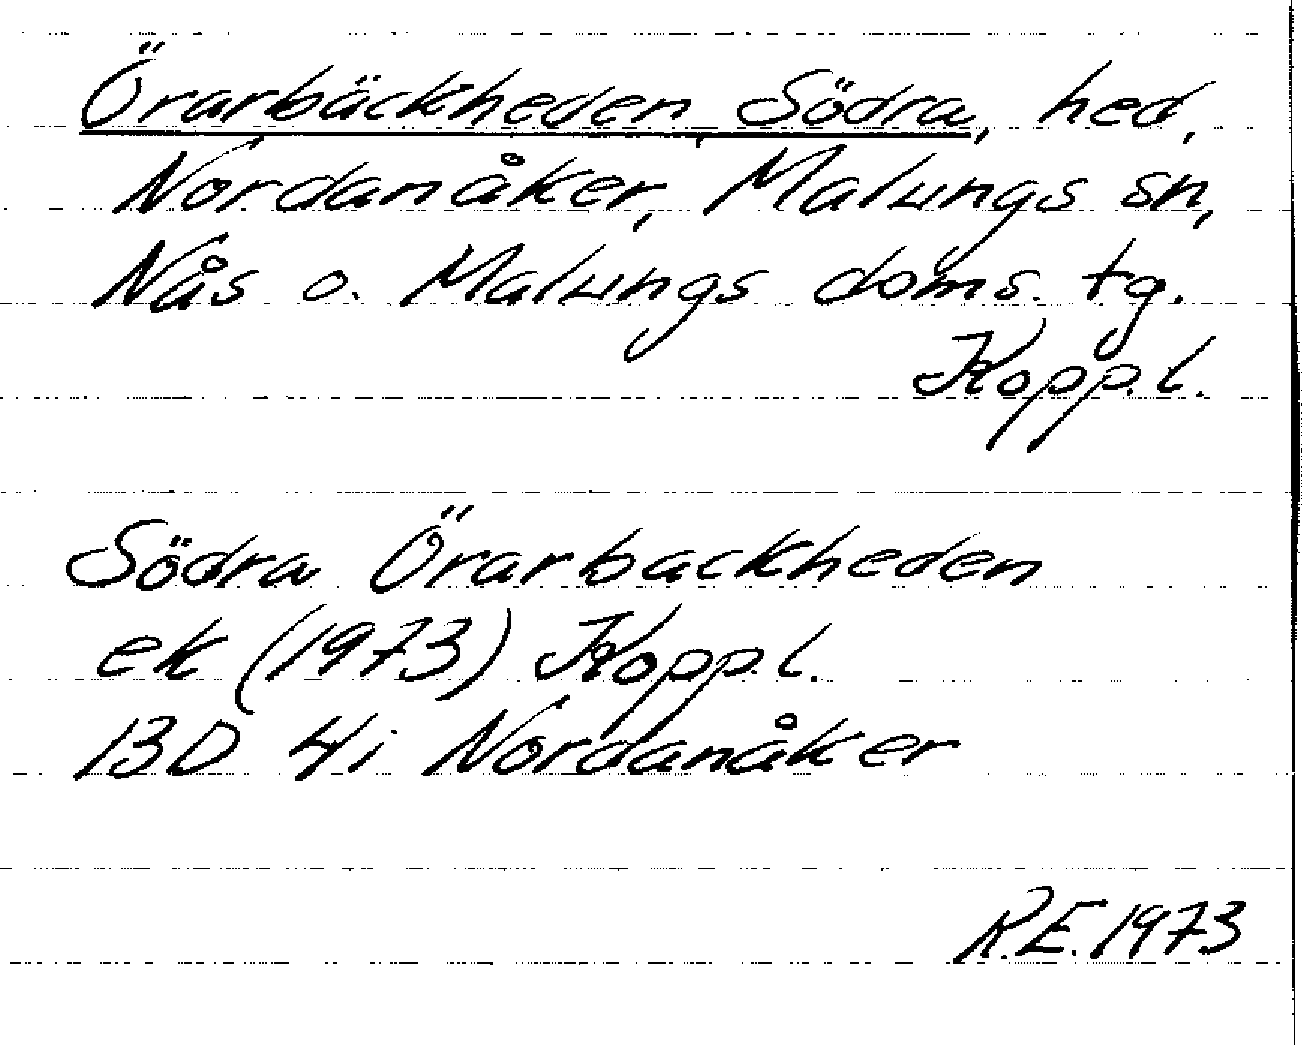 Örarbäckheden, Södra, hed,
Nordanåker, Malungs sn,
Nås o. Malungs doms. tg.
Kopp.l.
Södra Örarbackheden
ek (1973) Kopp.l.
13D 4i Nordanåker
R.E. 1973